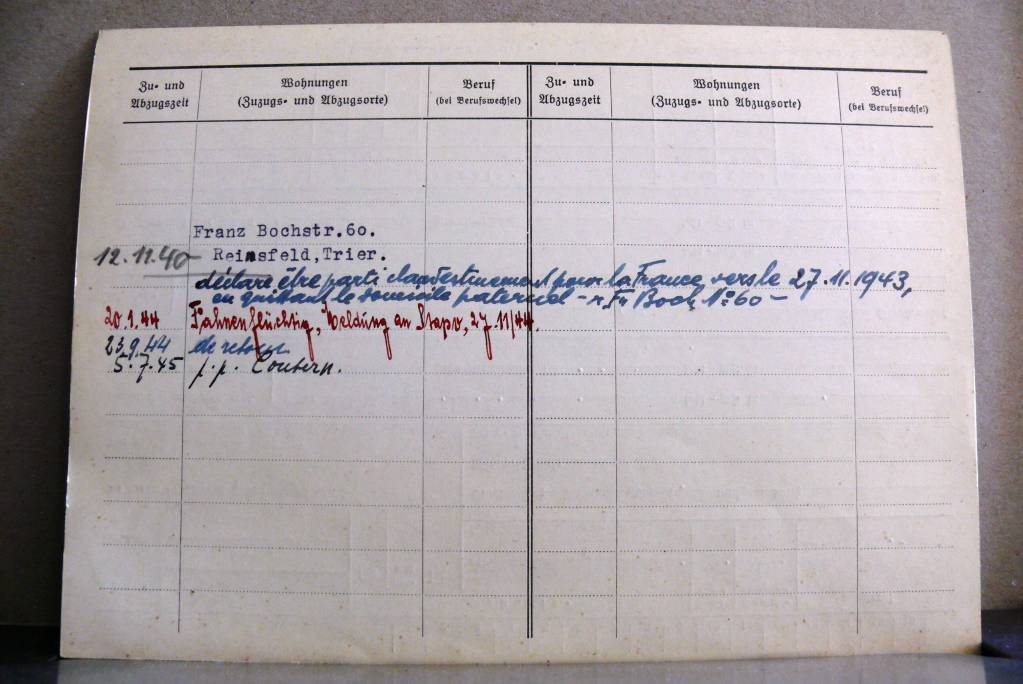 Zu- und Abzugszeit
Wohnungen
(Zuzugs- und Abzugsorte)
Beruf
(bei Berufswechsel)
Zu- und Abzugszeit
Wohnungen
(Zuzugs- und Abzugsorte)
Beruf
(bei Berufswechsel)
Franz Bochstr.60.
12.11.40 Reinsfeld,Trier.
déclare être parti clandestinement pour la France vers le 27.11.1943,
en quittant le domicile paternel - r. Fr Boch No 60 -
20.1.44 Fahnenflüchtig, Meldung an Stapo, 27.11/44.
23.9.44 de retour.
5.7.45 p.p. Contern.